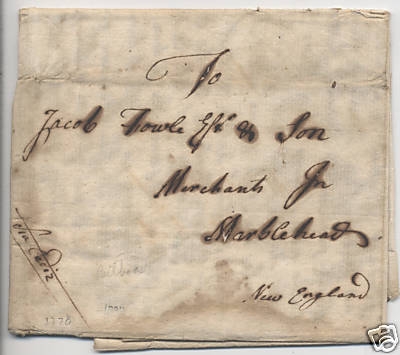 To
Jacob Fowle Esqr & Son
Merchants In
Marblehead
New England
via Cadiz
Bilboa
1770
ebY